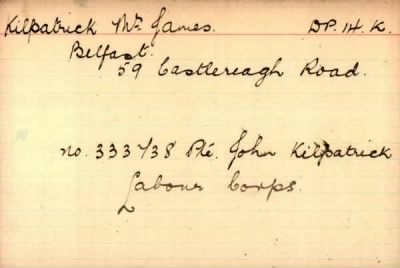 Kilpatrick Mr. James. DP. 14. K.
Belfast.
59 Castlereagh Road.
no. 333738 Pte. John Kilpatrick
Labour Corps.